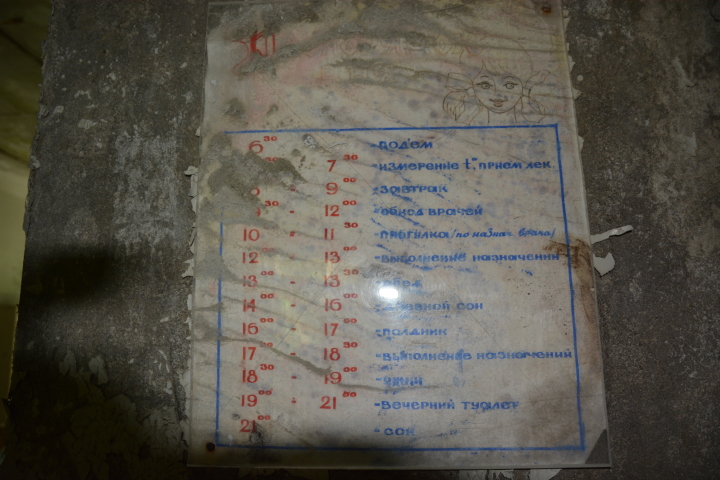 6 30 - ПОДЪЕМ
7 30 - ИЗМЕРЕНИЕ t° ПРИЕМ ЛЕК.
9 00 - ЗАВТРАК
30 - 12 00 - ОБХОД ВРАЧЕЙ
10 - 11 30 - ПРОГУЛКА /по назнач. врача/
12 00 - 13 00 - ВЫПОЛНЕНИЕ НАЗНАЧЕНИЙ
13 00 - 13 30
14 00 - 16 00 - СОН
16 00 - 17 00 - ПОЛДНИК
17 00 - 18 30 - ВЫПОЛНЕНИЕ НАЗНАЧЕНИЙ
18 30 - 19 00 - УЖИН
19 00 - 21 00 - ВЕЧЕРНИЙ ТУАЛЕТ
21 00 - СОН